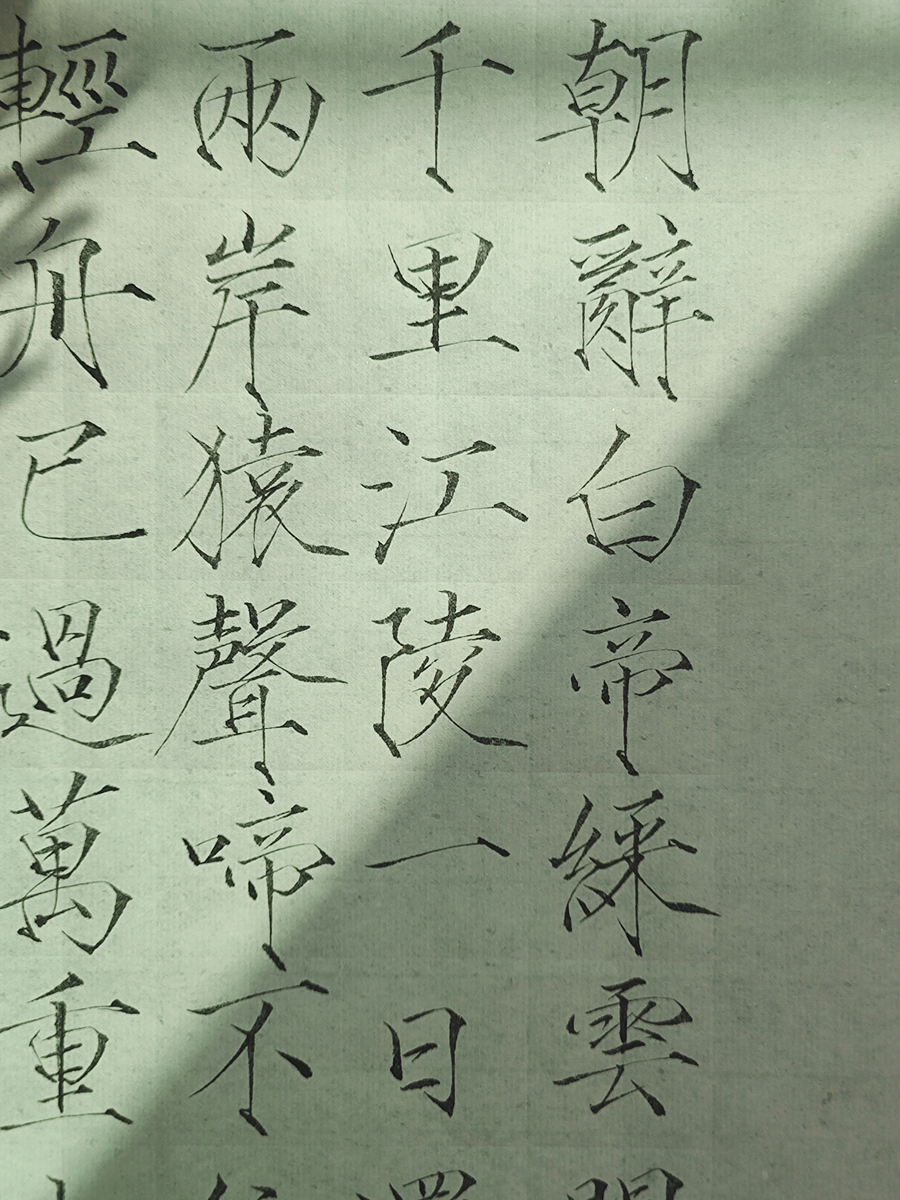 朝辭白帝綵雲間
千里江陵一日還
兩岸猿聲啼不
輕舟已過萬重